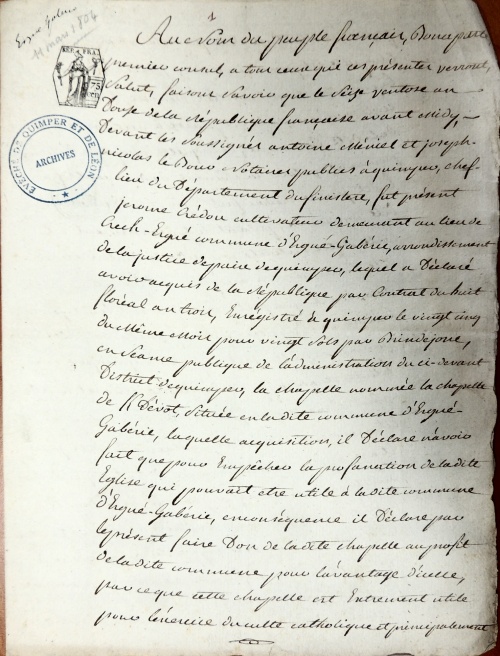 Ergué Gabéric
11 mars 1804
REP. FRA.
75 cen
EVÊCHÉ DE QUIMPER ET DE LÉON
ARCHIVES
1
Au Nom du peuple français, Bonaparte
premier consul, a tous ceux qui ces presentes verront,
Salut, faisons Savoir que le Seize ventose an
Douze de la République française avant Midy,
Devant les Soussignés antoine Méniel et joseph-
nicolas le Bour Notaires publics à quimper, chef-
lieu du Departement du finistere, fut présent
jerome Crédou cultivateur demeurant au lieu de
Crech-Ergué commune d'Ergué-Gabéric, arrondissement
de la justice de paix de quimper, lequel a Déclaré
avoir acquis de la République par Contrat du huit
floréal an trois, Enregistré à quimper le vingt cinq
du Même Mois pour vingt Sols par Brindejonc,
en Séance publique de l'administration du ci-devant
District de quimper, la chapelle nommée la chapelle
de K/Dévot, Située en la dite commune d'Ergué-
Gabéric, laquelle acquisition, il Déclare n'avoir
fait que pour Empêcher la profanation de la dite
Eglise qui pouvait etre utile à la dite commune
d'Ergué-Gabéric, en conséquence il Déclare par
le présent faire Don de la dite chapelle au profit
de la dite commune pour l'avantage d'icelle,
par ce que cette chapelle est Entrement utile
pour l'énercice du culte catholique et principalement